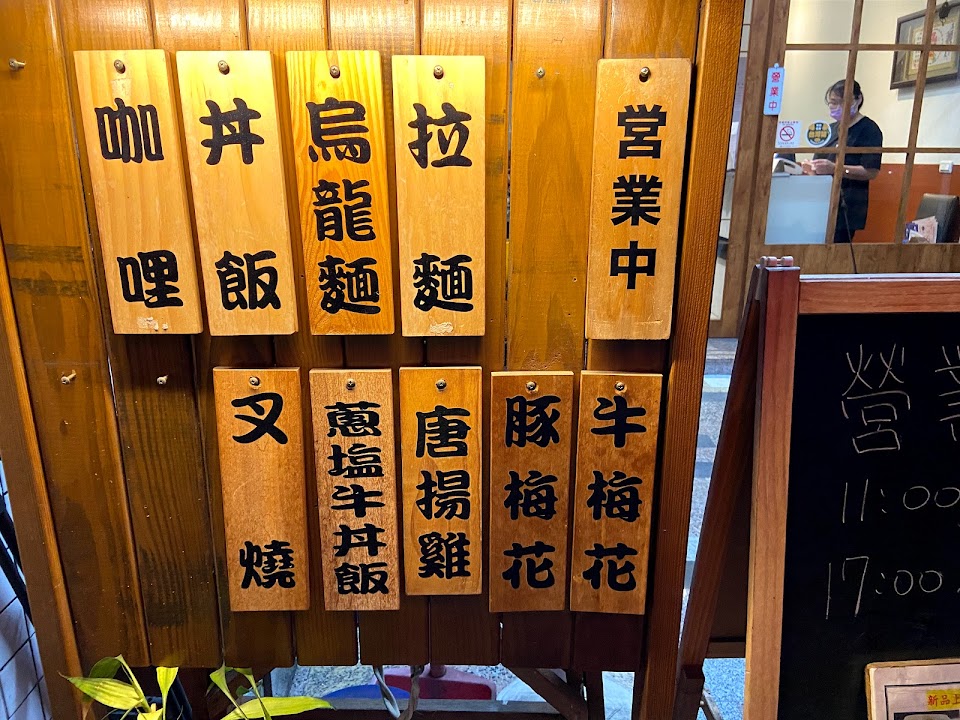 営業中
拉麵
烏龍麵
丼飯
咖哩
牛梅花
豚梅花
唐揚雞
蔥塩牛丼飯
叉燒
營業中
營業
11:00
17:00
新品上